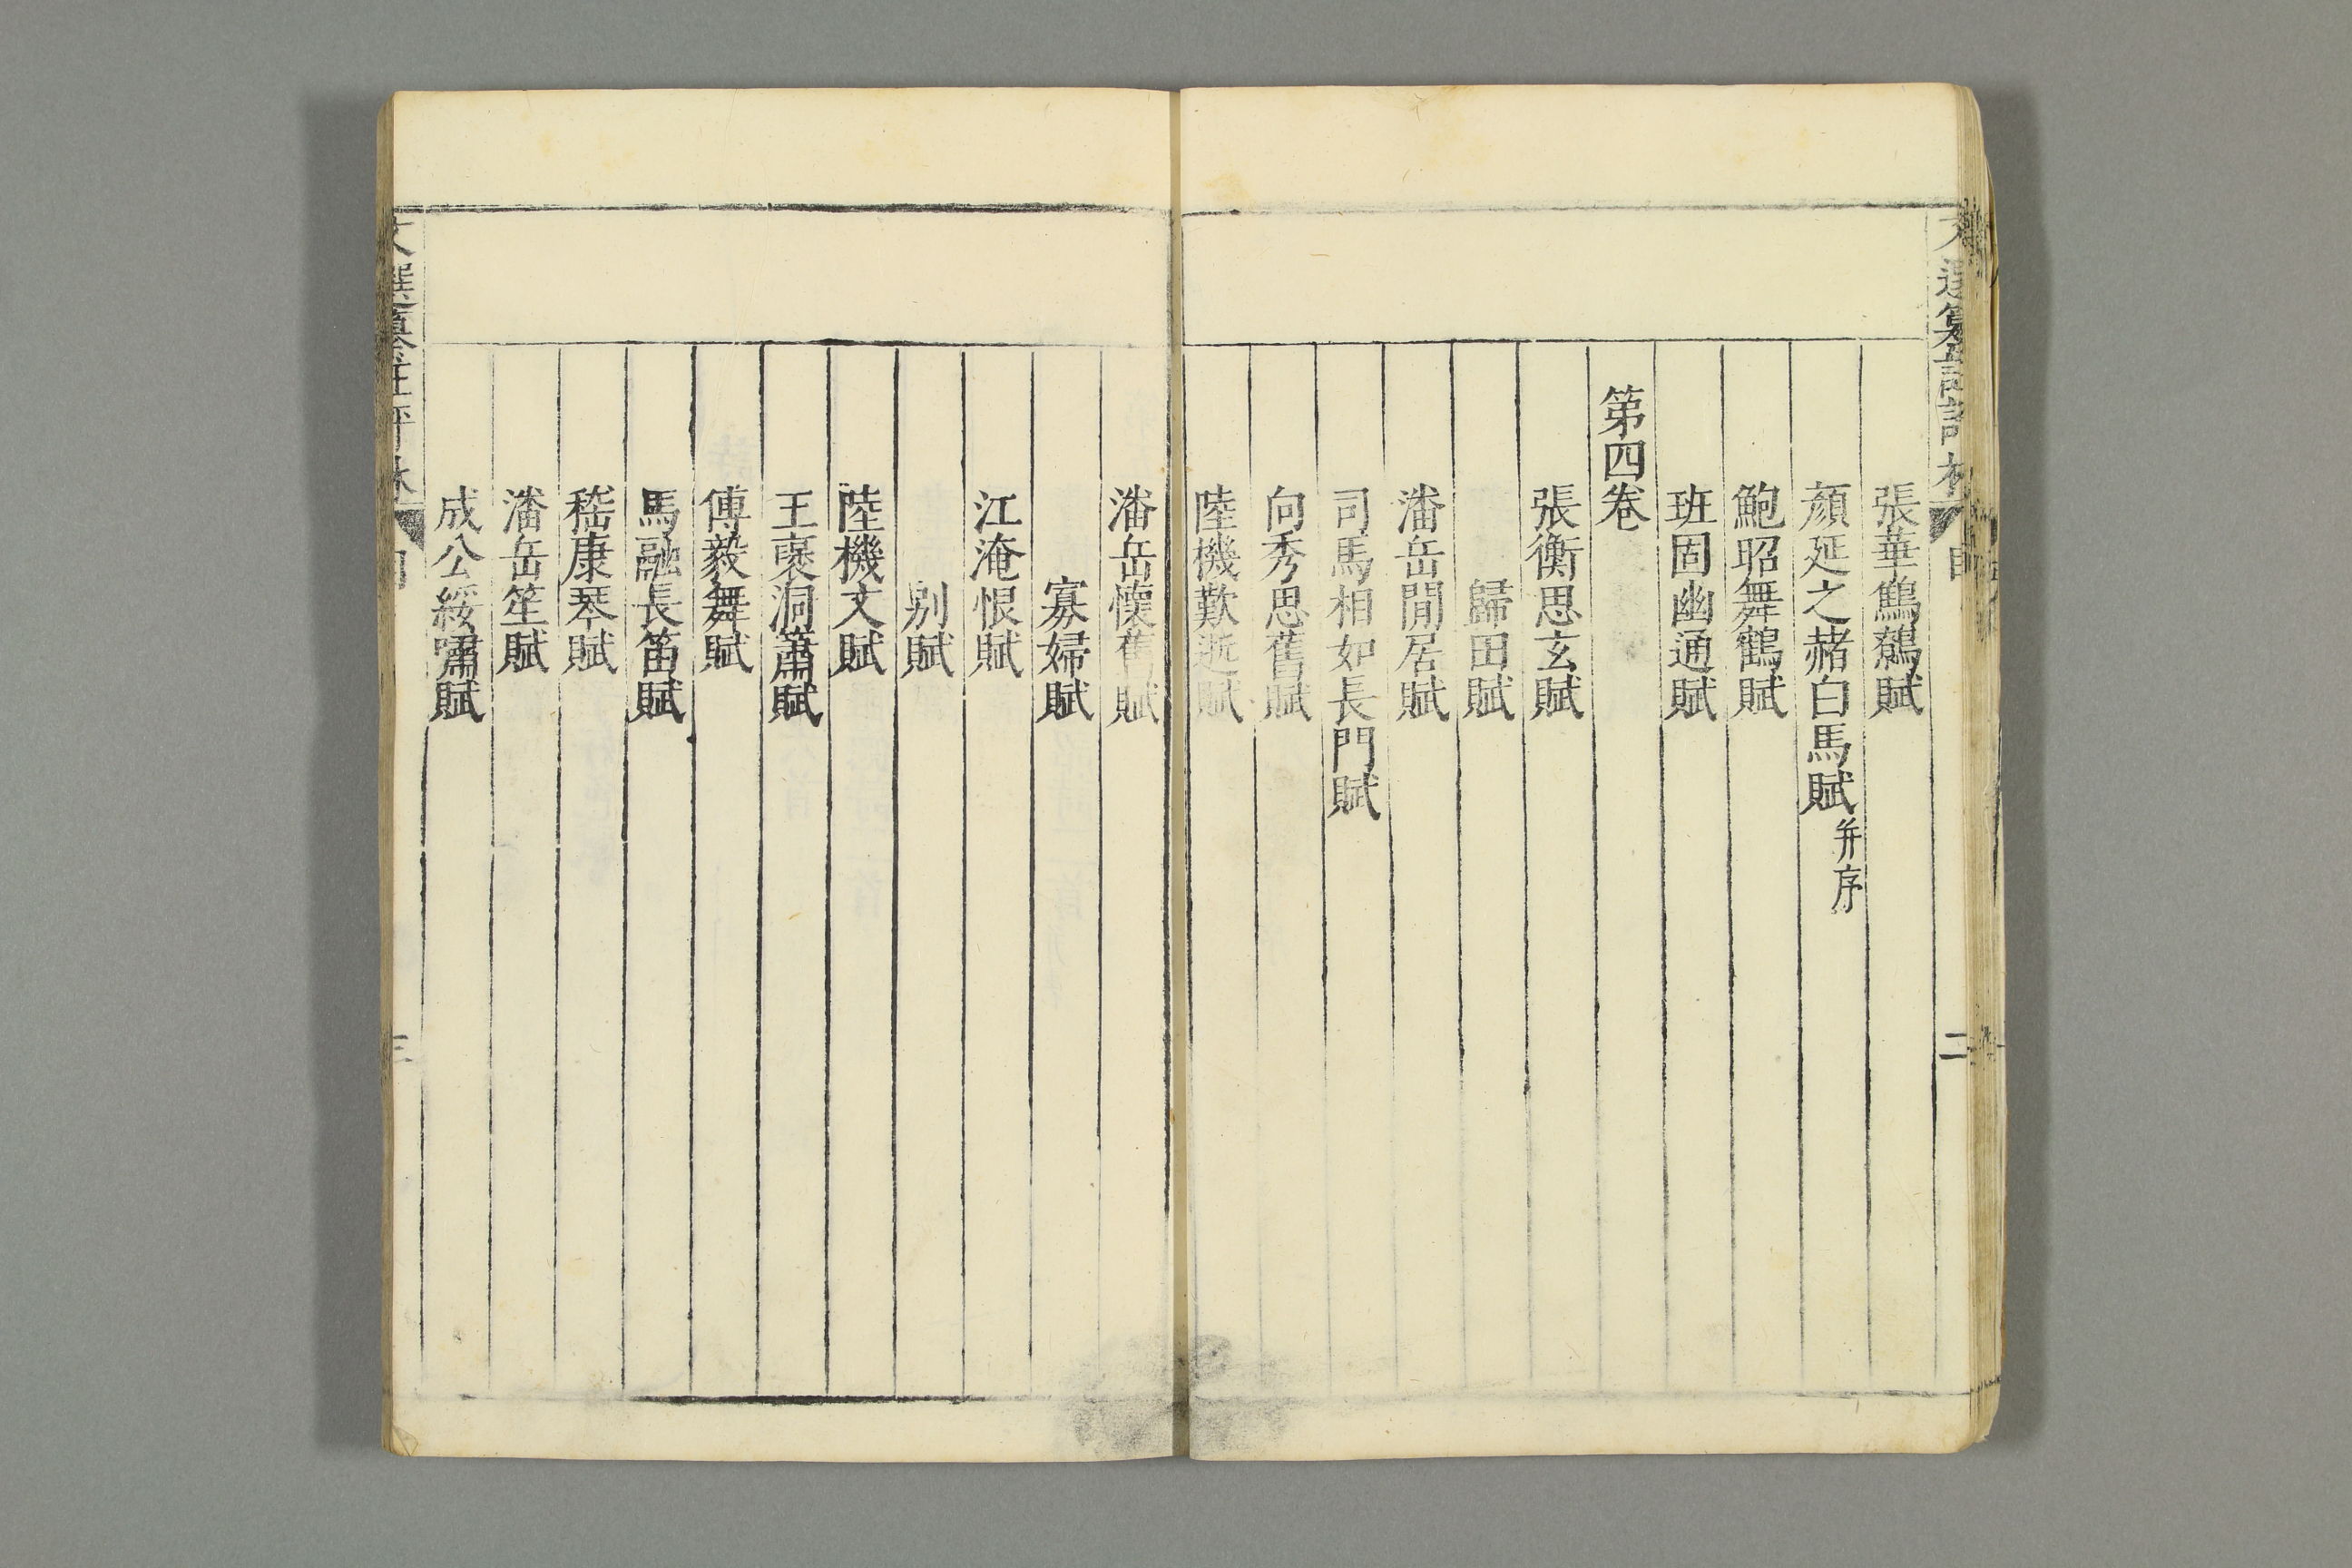 張華鷦鷯賦
顏延之赭白馬賦并序
鮑昭舞鶴賦
班固幽通賦
第四卷
張衡思玄賦
歸田賦
潘岳閒居賦
司馬相如長門賦
向秀思舊賦
陸機歎逝賦
潘岳懷舊賦
寡婦賦
江淹恨賦
別賦
陸機文賦
王褒洞簫賦
傅毅舞賦
馬融長笛賦
嵇康琴賦
潘岳笙賦
成公綏嘯賦